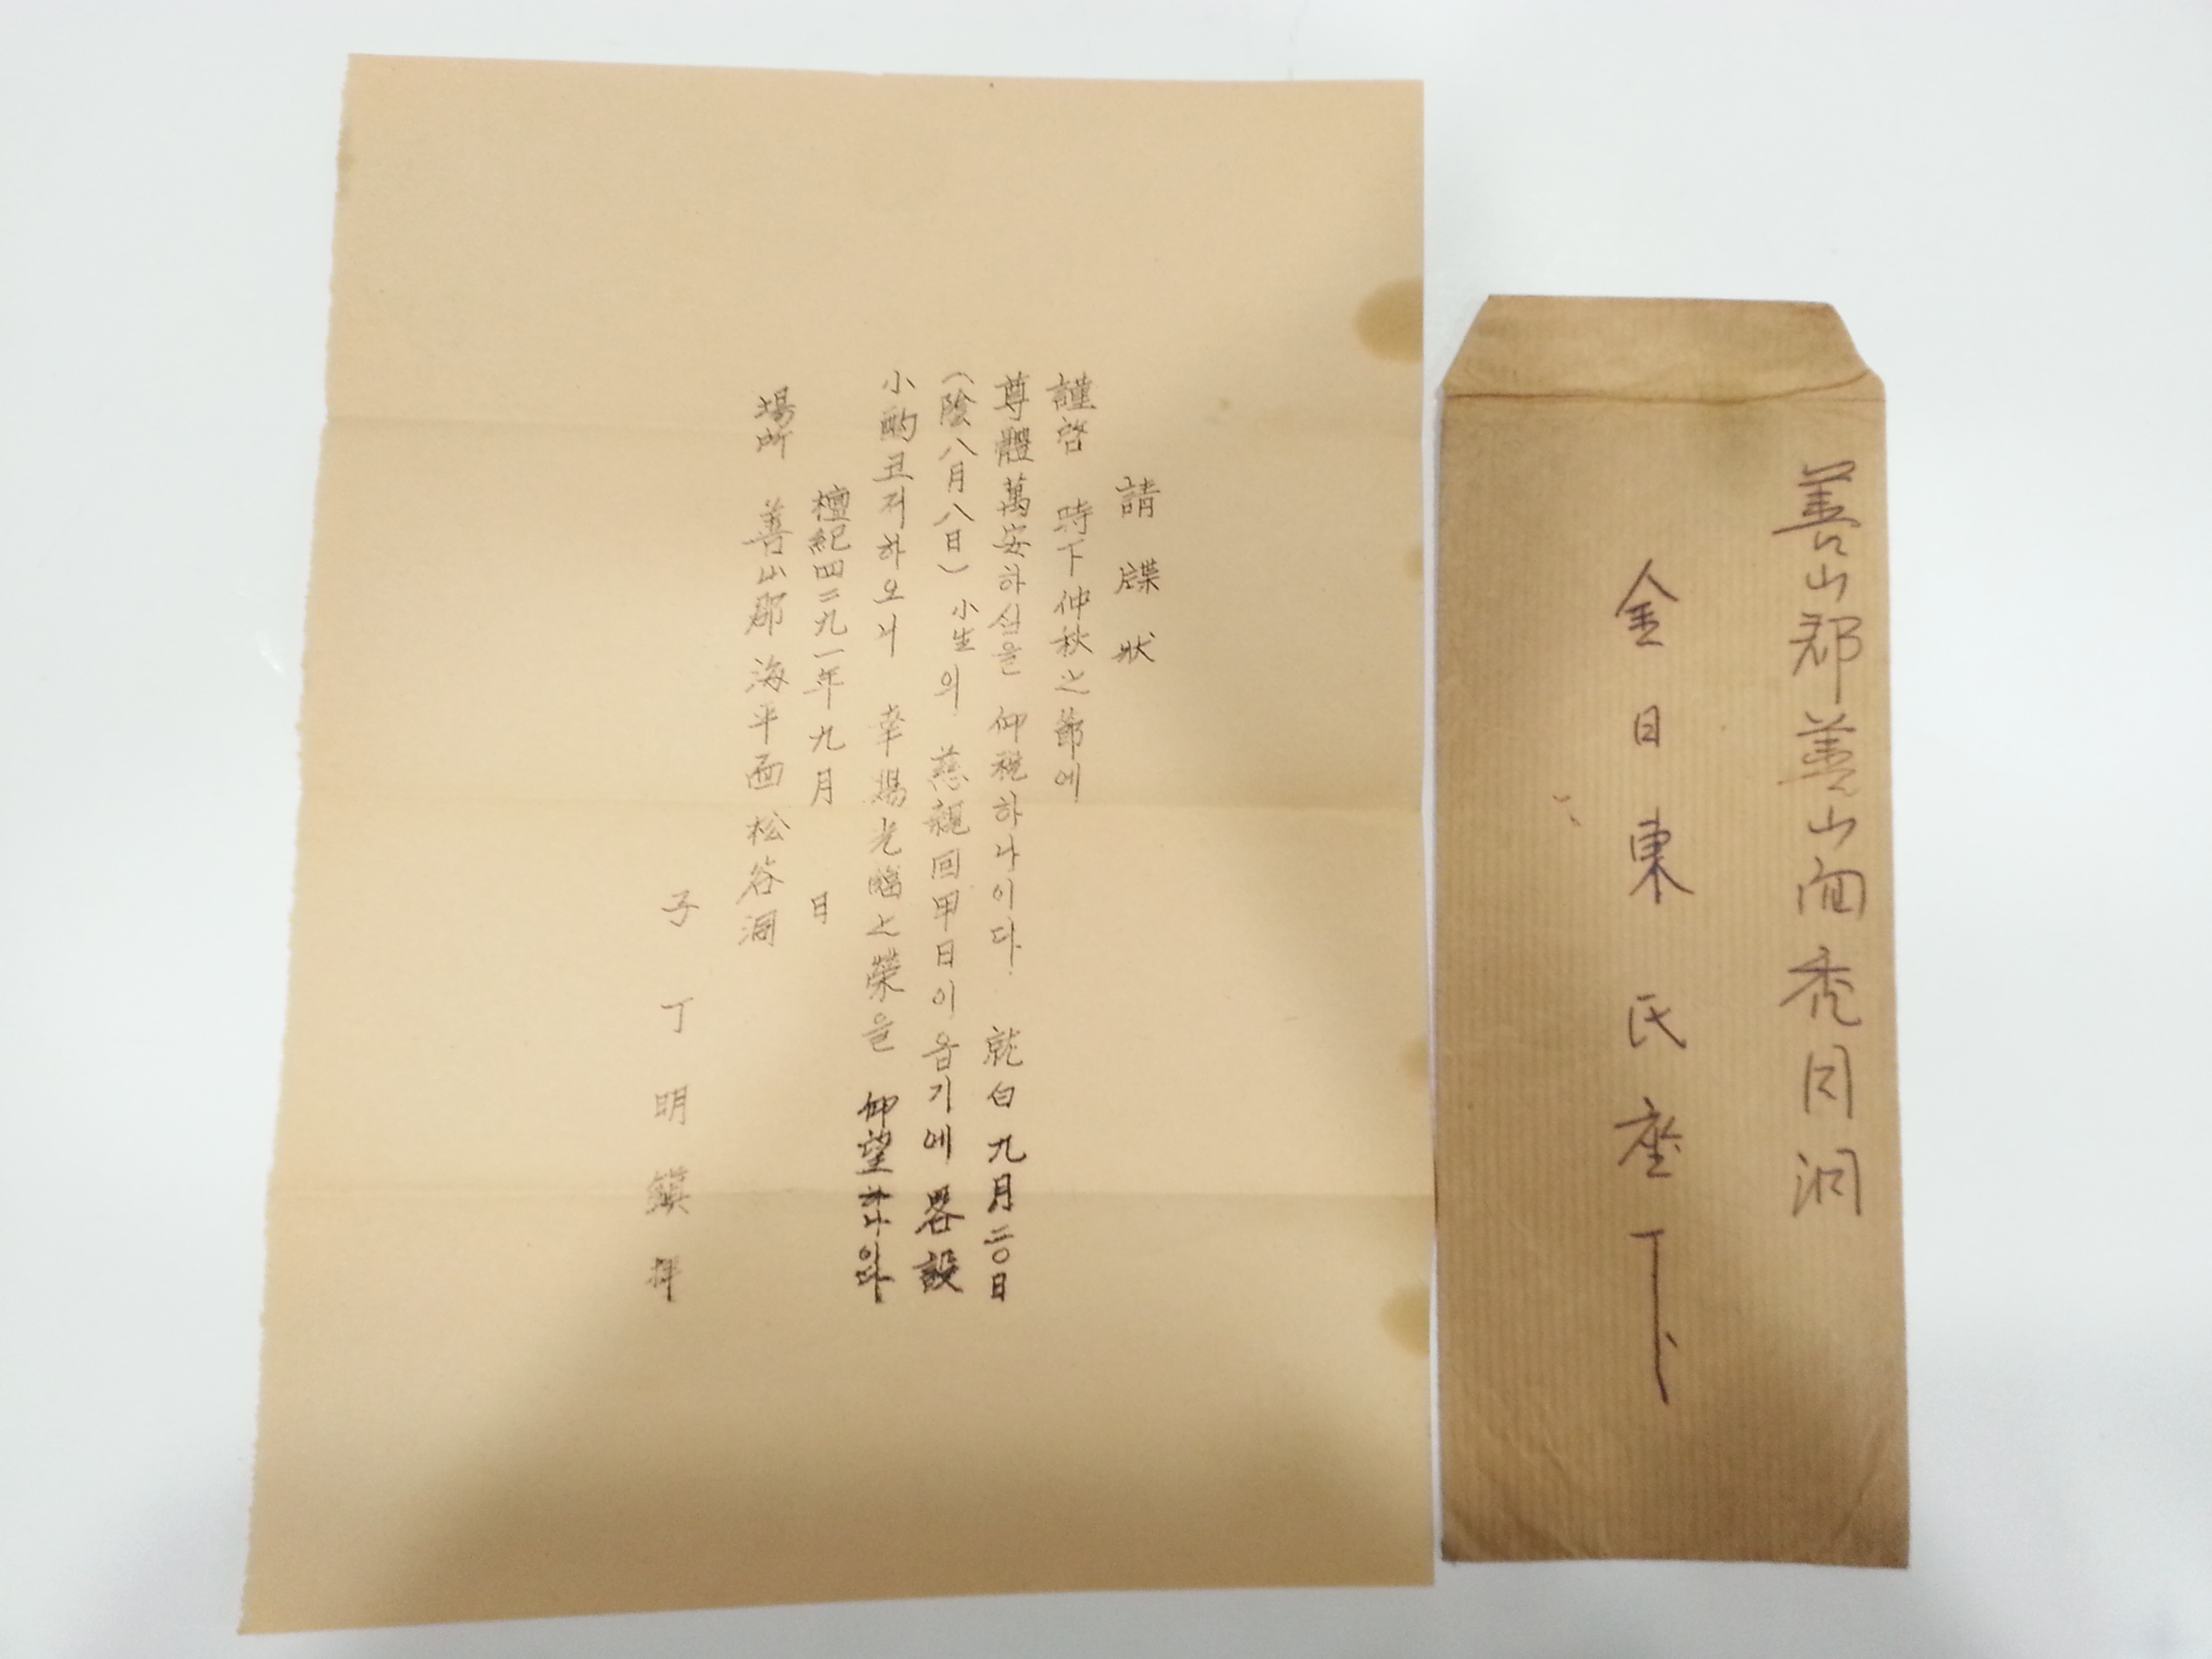 請牒狀
謹啓 時下仲秋之節에
尊體萬安하심을 仰祝하나이다. 就白 九月二〇日
(陰八月八日) 小生의 慈親回甲日이옵기에 畧設
小酌코저하오니 幸賜光臨之榮을 仰望하나이다
檀紀四二九一年九月 日
場所 善山郡 海平面 松谷洞
子 丁明鎭 拜
善山郡善山面禿同洞
金日東氏座下